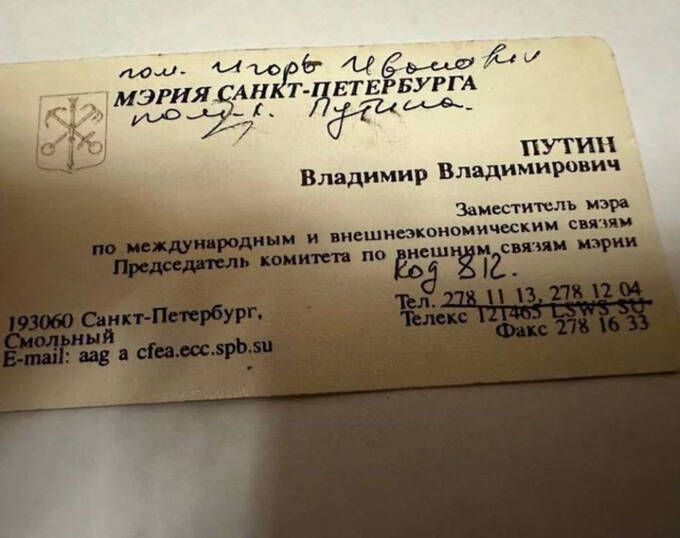 пом. Игорь Иванович
МЭРИЯ САНКТ-ПЕТЕРБУРГА
Путина.
ПУТИН
Владимир Владимирович
Заместитель мэра
по международным и внешнеэкономическим связям
Председатель комитета по внешним связям мэрии
Код 812.
193060 Санкт-Петербург,
Смольный
E-mail: aag a cfea.ecc.spb.su
Тел. 278 11 13, 278 12 04
Телекс 121465 LSWS SU
Факс 278 16 33